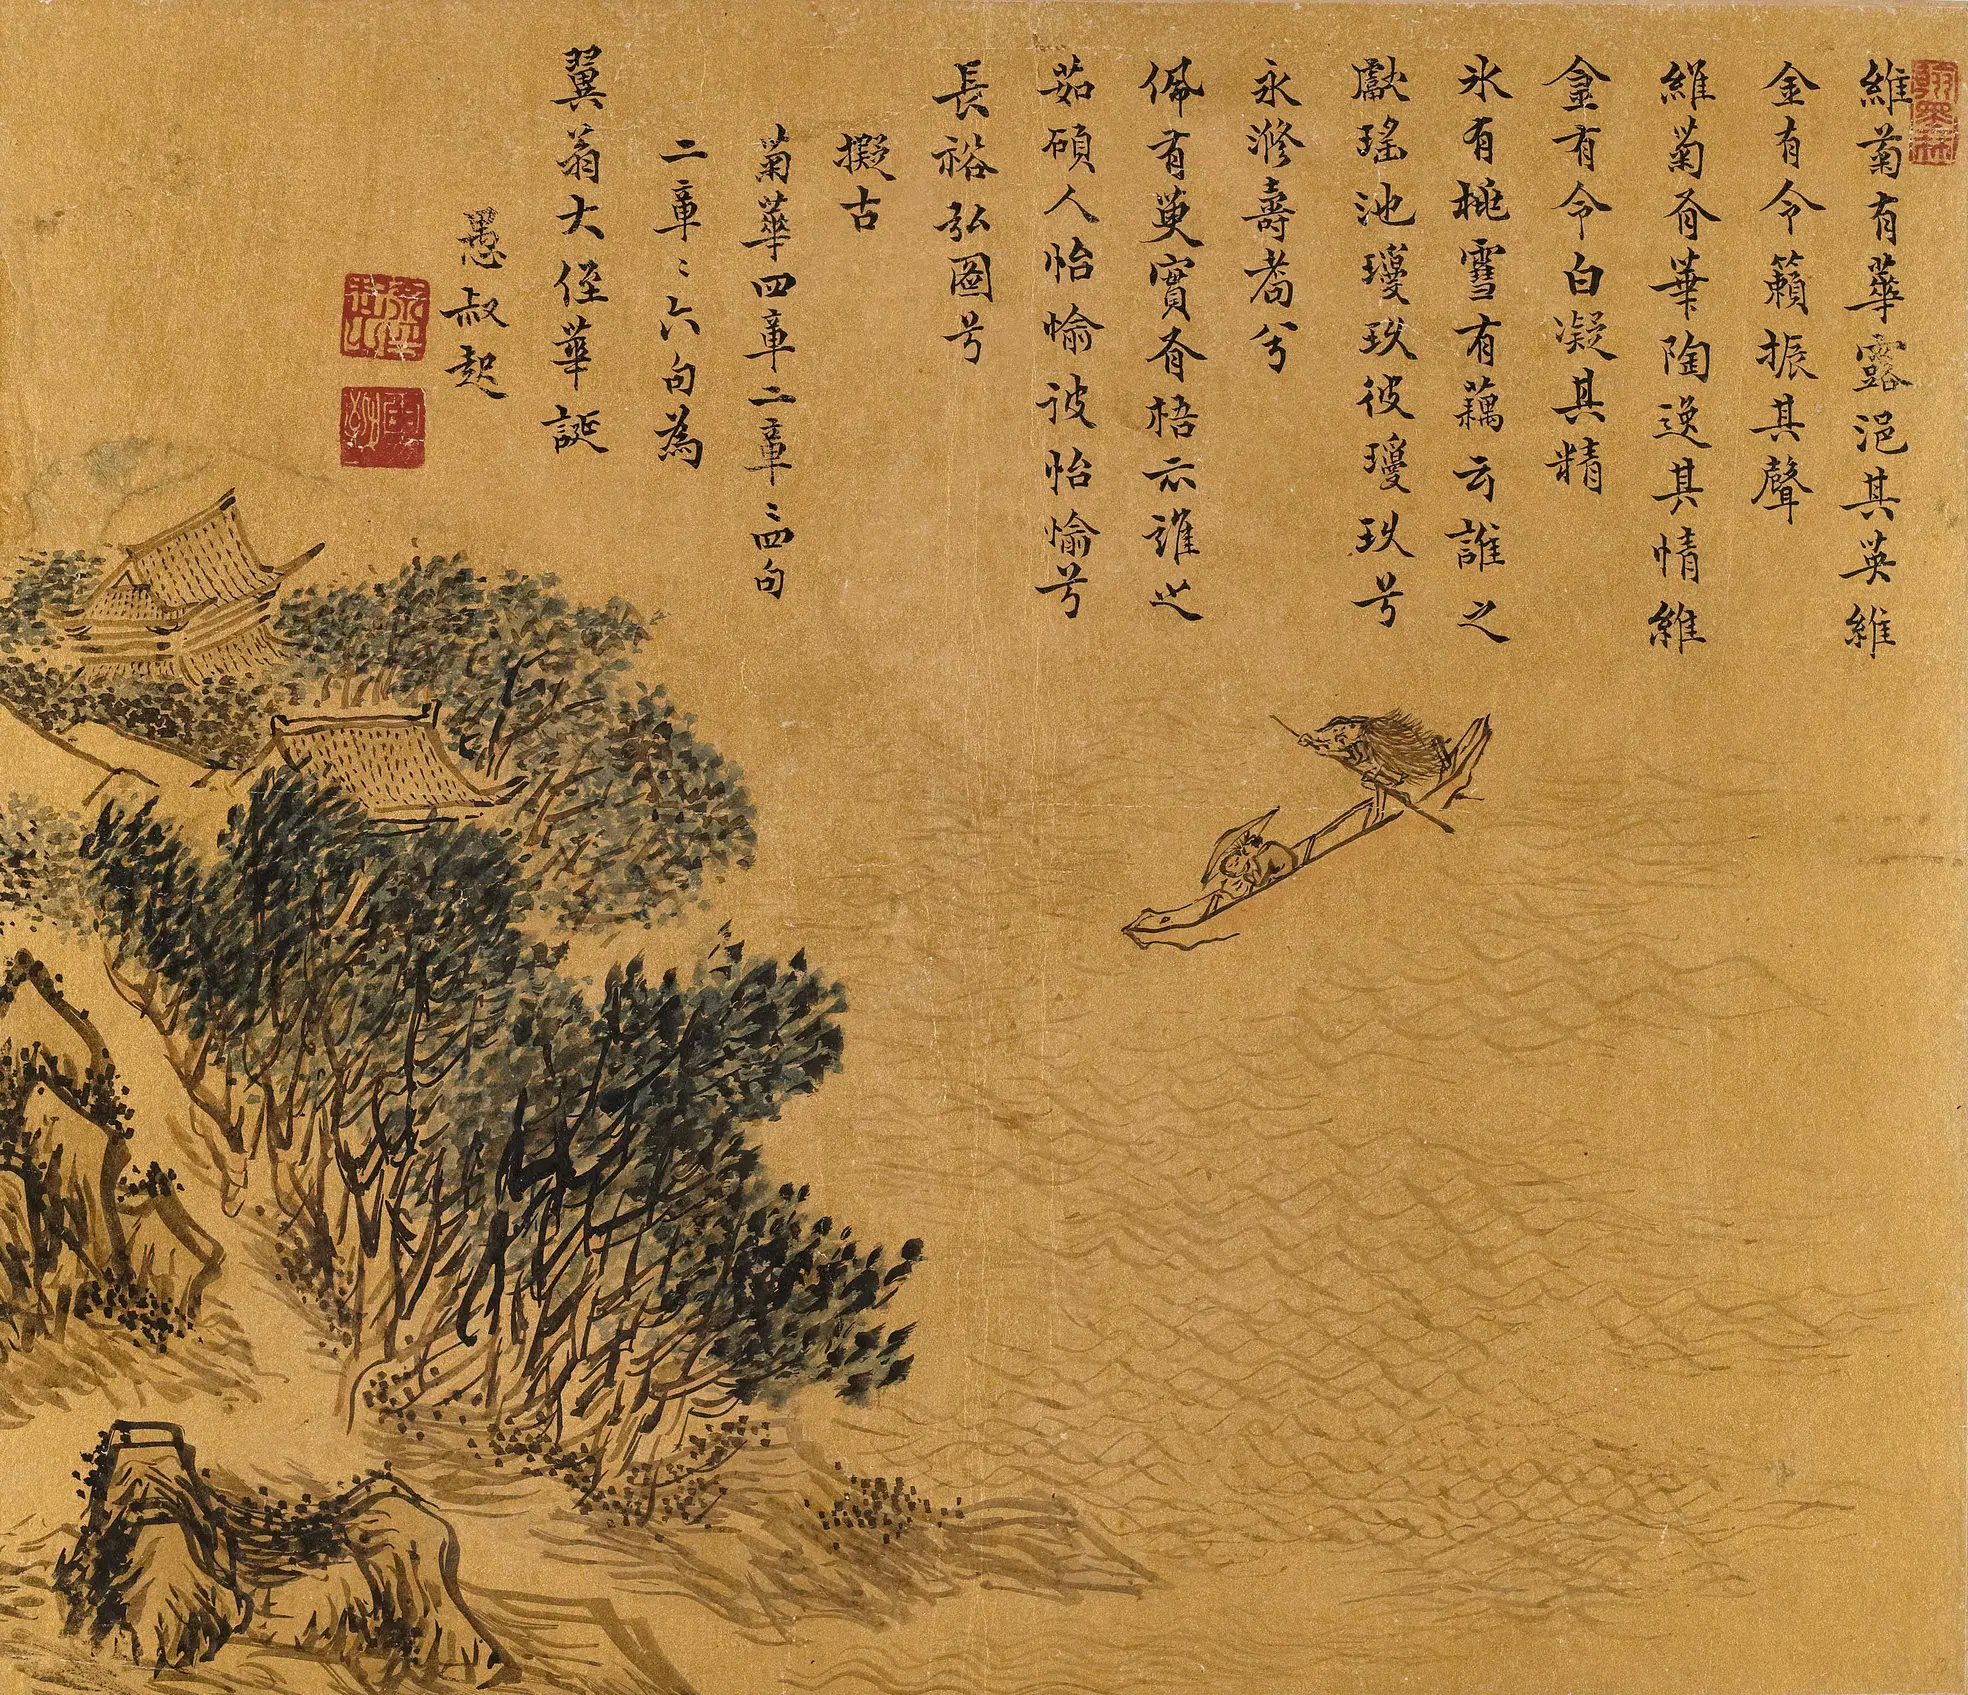 維菊有華露浥其英維
金有令籟振其聲
維菊有華陶逸其情維
金有令白凝其精
氷有桃雪有藕云誰之
獻瑤池瓊玖彼瓊玖兮
永滫壽耈兮
佩有萸實有梧云誰之
茹碩人怡愉彼怡愉兮
長裕弘圖兮
擬古
菊華四章二章二四句
二章二六句為
翼翁大侄華誕
愚叔起